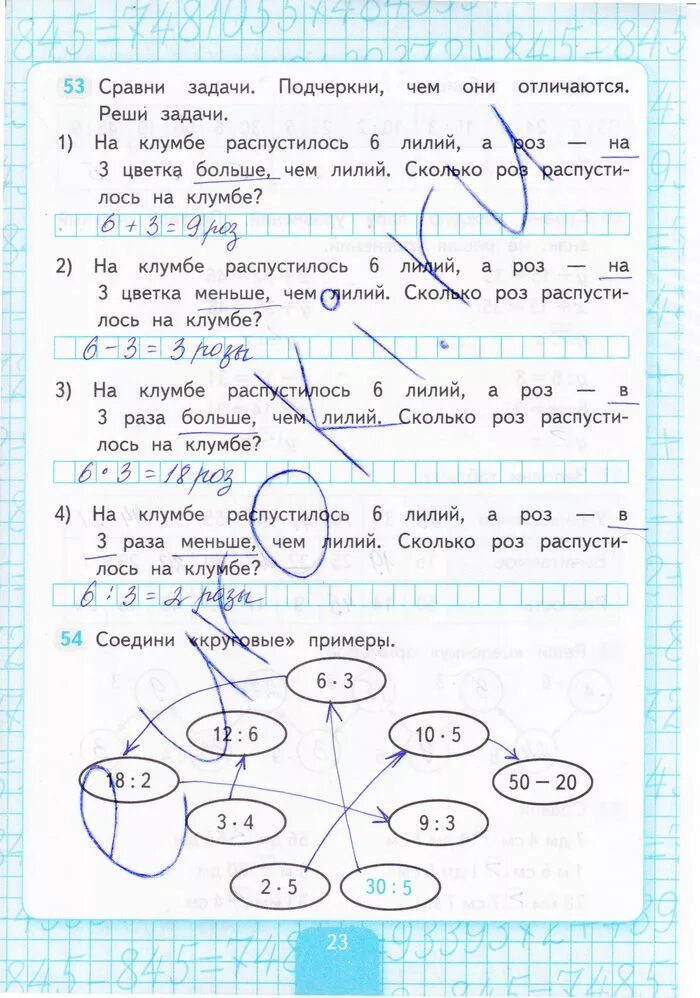 53 Сравни задачи. Подчеркни, чем они отличаются.
Реши задачи.
1) На клумбе распустилось 6 лилий, а роз — на
3 цветка больше, чем лилий. Сколько роз распусти-
лось на клумбе?
6 + 3 = 9 роз
2) На клумбе распустилось 6 лилий, а роз — на
3 цветка меньше, чем лилий. Сколько роз распусти-
лось на клумбе?
6 - 3 = 3 розы
3) На клумбе распустилось 6 лилий, а роз — в
3 раза больше, чем лилий. Сколько роз распусти-
лось на клумбе?
6 · 3 = 18 роз
4) На клумбе распустилось 6 лилий, а роз — в
3 раза меньше, чем лилий. Сколько роз распусти-
лось на клумбе?
6 : 3 = 2 розы
54 Соедини «круговые» примеры.
6 · 3
12 : 6
10 · 5
18 : 2
50 − 20
3 · 4
9 : 3
2 · 5
30 : 5
23